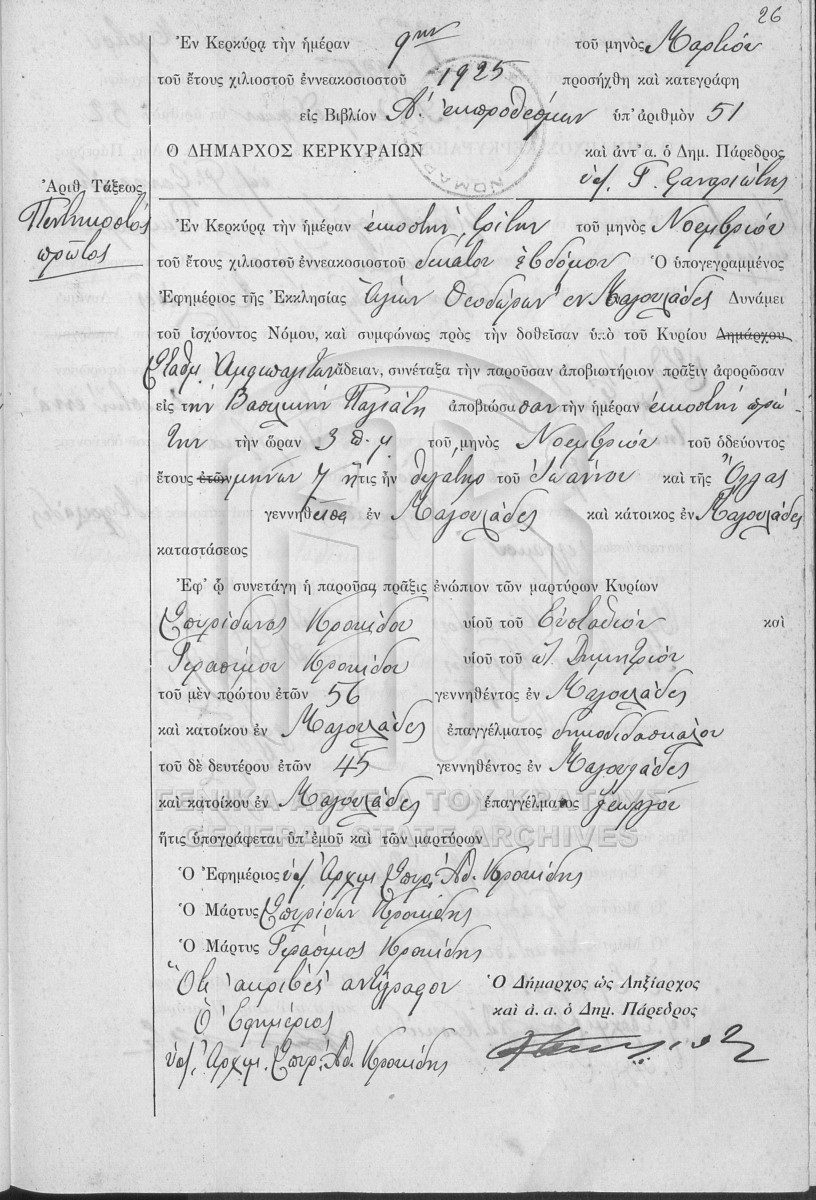 26
Ἐν Κερκύρᾳ τὴν ἡμέραν 9ην τοῦ μηνὸς Μαρτίου
τοῦ ἔτους χιλιοστοῦ ἐννεακοσιοστοῦ 1925 προσήχθη καὶ κατεγράφη
εἰς Βιβλίον Α' ἐκπροθέσμων ὑπ' ἀριθμὸν 51
Ο ΔΗΜΑΡΧΟΣ ΚΕΡΚΥΡΑΙΩΝ καὶ ἀντ' α. ὁ Δημ. Πάρεδρος
ὑπ/ Γ.
Ἀριθ. Τάξεως
Πεντηκοστὸς
πρῶτος
Ἐν Κερκύρᾳ τὴν ἡμέραν εἰκοστὴν τρίτην τοῦ μηνὸς Νοεμβρίου
τοῦ ἔτους χιλιοστοῦ ἐννεακοσιοστοῦ δεκάτου ἑβδόμου Ὁ ὑπογεγραμμένος
Ἐφημέριος τῆς Ἐκκλησίας Ἁγίων Θεοδώρων ἐν Μαγουλάδες Δυνάμει
τοῦ ἰσχύοντος Νόμου, καὶ συμφώνως πρὸς τὴν δοθεῖσαν ὑπὸ τοῦ Κυρίου Δημάρχου
Σταθμ. ἄδειαν, συνέταξα τὴν παροῦσαν ἀποβιωτήριον πρᾶξιν ἀφορῶσαν
εἰς τὴν Βασιλικὴν Παγιάτη ἀποβιώσασαν τὴν ἡμέραν εἰκοστὴν πρώ
την τὴν ὥραν 3 π.μ. τοῦ μηνὸς Νοεμβρίου τοῦ ὁδεύοντος
ἔτους ἐτῶν μηνῶν 7 ἥτις ἦν θυγάτηρ τοῦ Ἰωάννου καὶ τῆς Ὄλγας
γεννηθεῖσα ἐν Μαγουλάδες καὶ κάτοικος ἐν Μαγουλάδες
καταστάσεως
Ἐφ' ᾧ συνετάγη ἡ παροῦσα πρᾶξις ἐνώπιον τῶν μαρτύρων Κυρίων
Σπυρίδωνος Κροκίδου υἱοῦ τοῦ Εὐσταθίου καὶ
Γερασίμου Κροκίδου υἱοῦ τοῦ Δημητρίου
τοῦ μὲν πρώτου ἐτῶν 56 γεννηθέντος ἐν Μαγουλάδες
καὶ κατοίκου ἐν Μαγουλάδες ἐπαγγέλματος δημοδιδασκάλου
τοῦ δὲ δευτέρου ἐτῶν 45 γεννηθέντος ἐν Μαγουλάδες
ΓΕΝΙΚΑ ΑΡΧΕΙΑ ΤΟΥ ΚΡΑΤΟΥΣ
καὶ κατοίκου ἐν Μαγουλάδες ἐπαγγέλματος γεωργοῦ
GENERAL STATE ARCHIVES
ἥτις ὑπογράφεται ὑπ' ἐμοῦ καὶ τῶν μαρτύρων
Ὁ Ἐφημέριος ὑπ/ Ἀρχιμ. Σπυρ. Ἀθ. Κροκίδης
Ὁ Μάρτυς Σπυρίδων Κροκίδης
Ὁ Μάρτυς Γεράσιμος Κροκίδης
Ὅτι ἀκριβὲς ἀντίγραφον Ὁ Δήμαρχος ὡς Ληξίαρχος
Ὁ Ἐφημέριος καὶ ἀ. α. ὁ Δημ. Πάρεδρος
ὑπ/ Ἀρχιμ. Σπυρ. Ἀθ. Κροκίδης